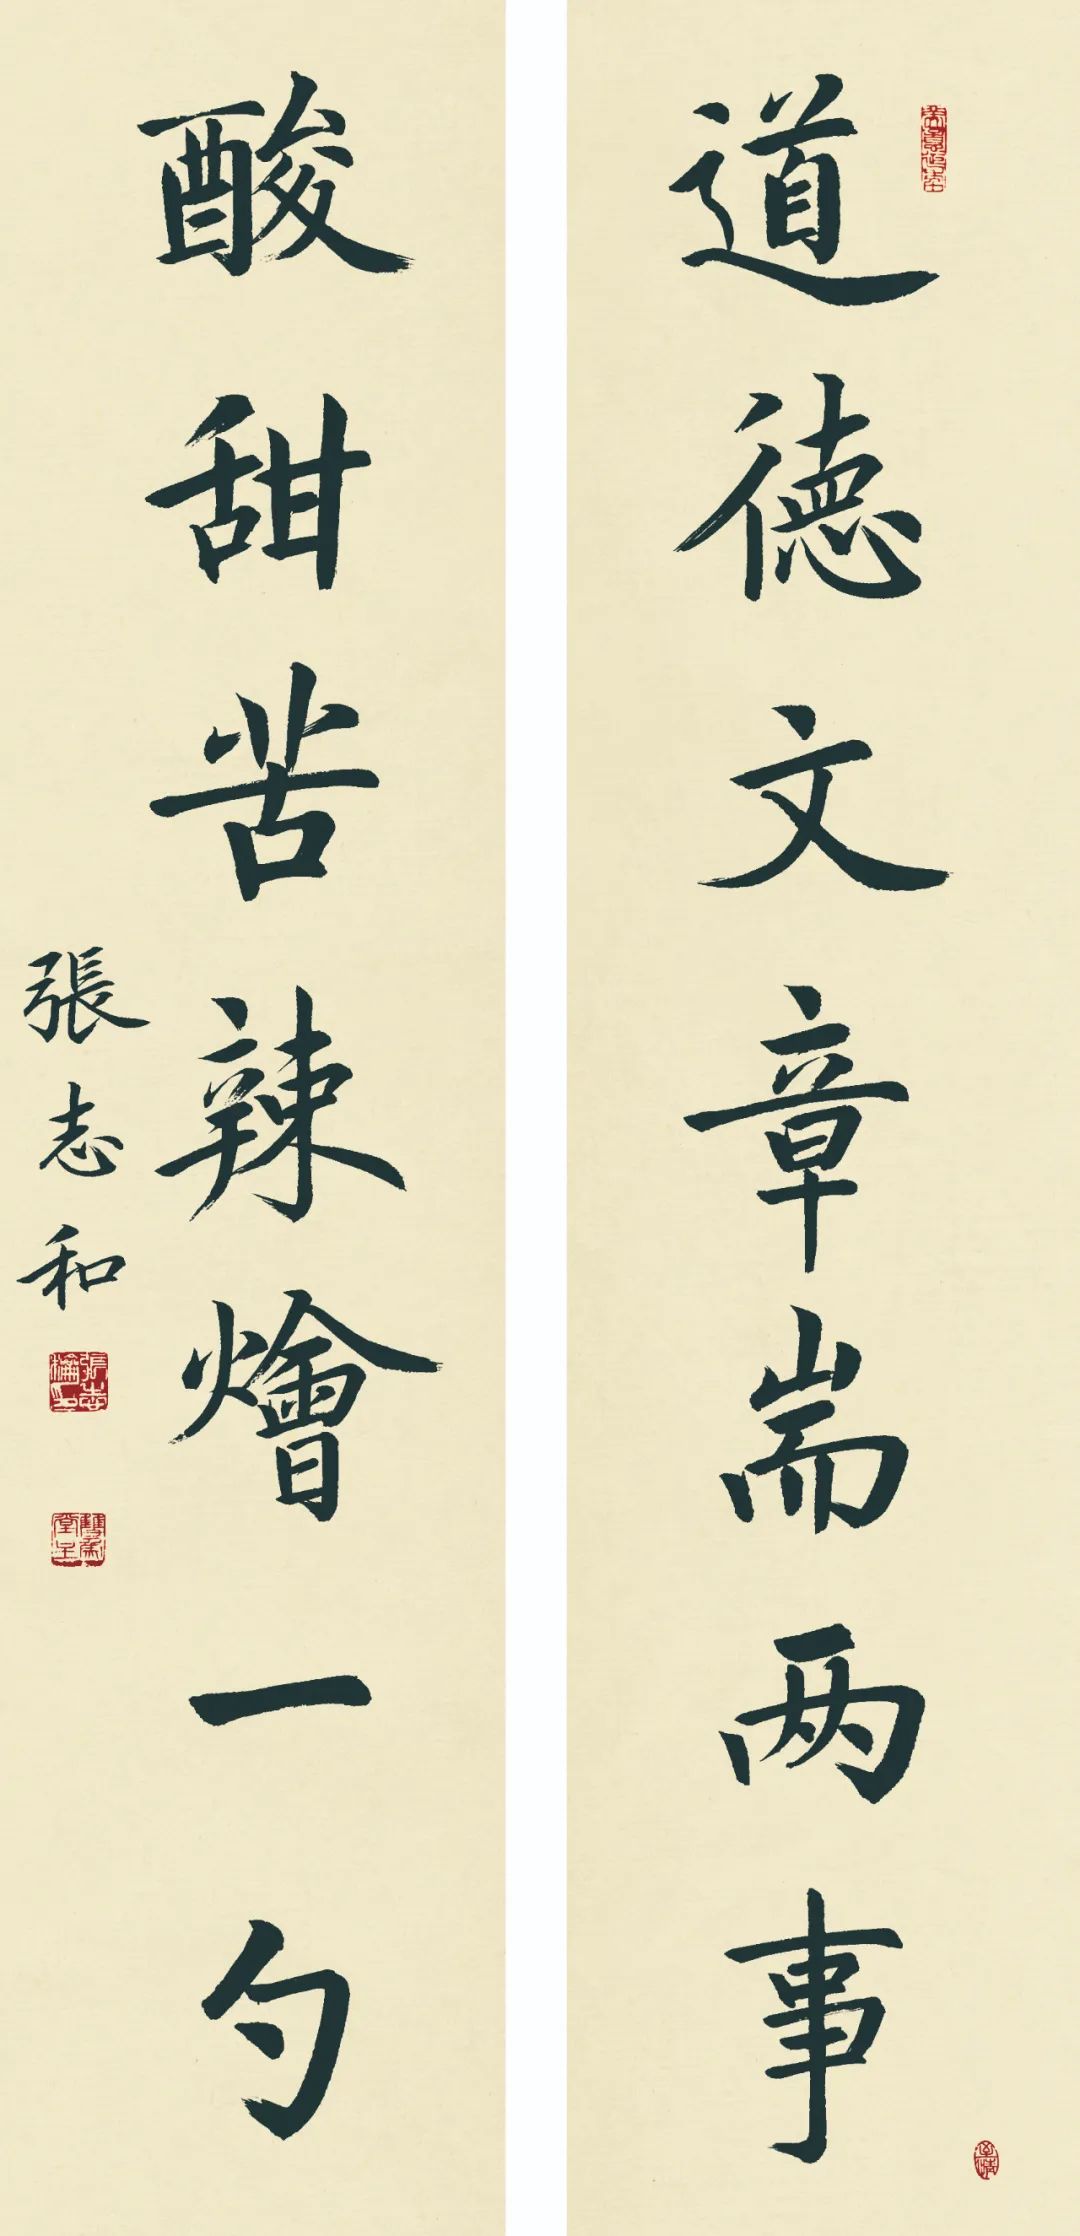 道德文章耑两事
酸甜苦辣燴一勺
張志和